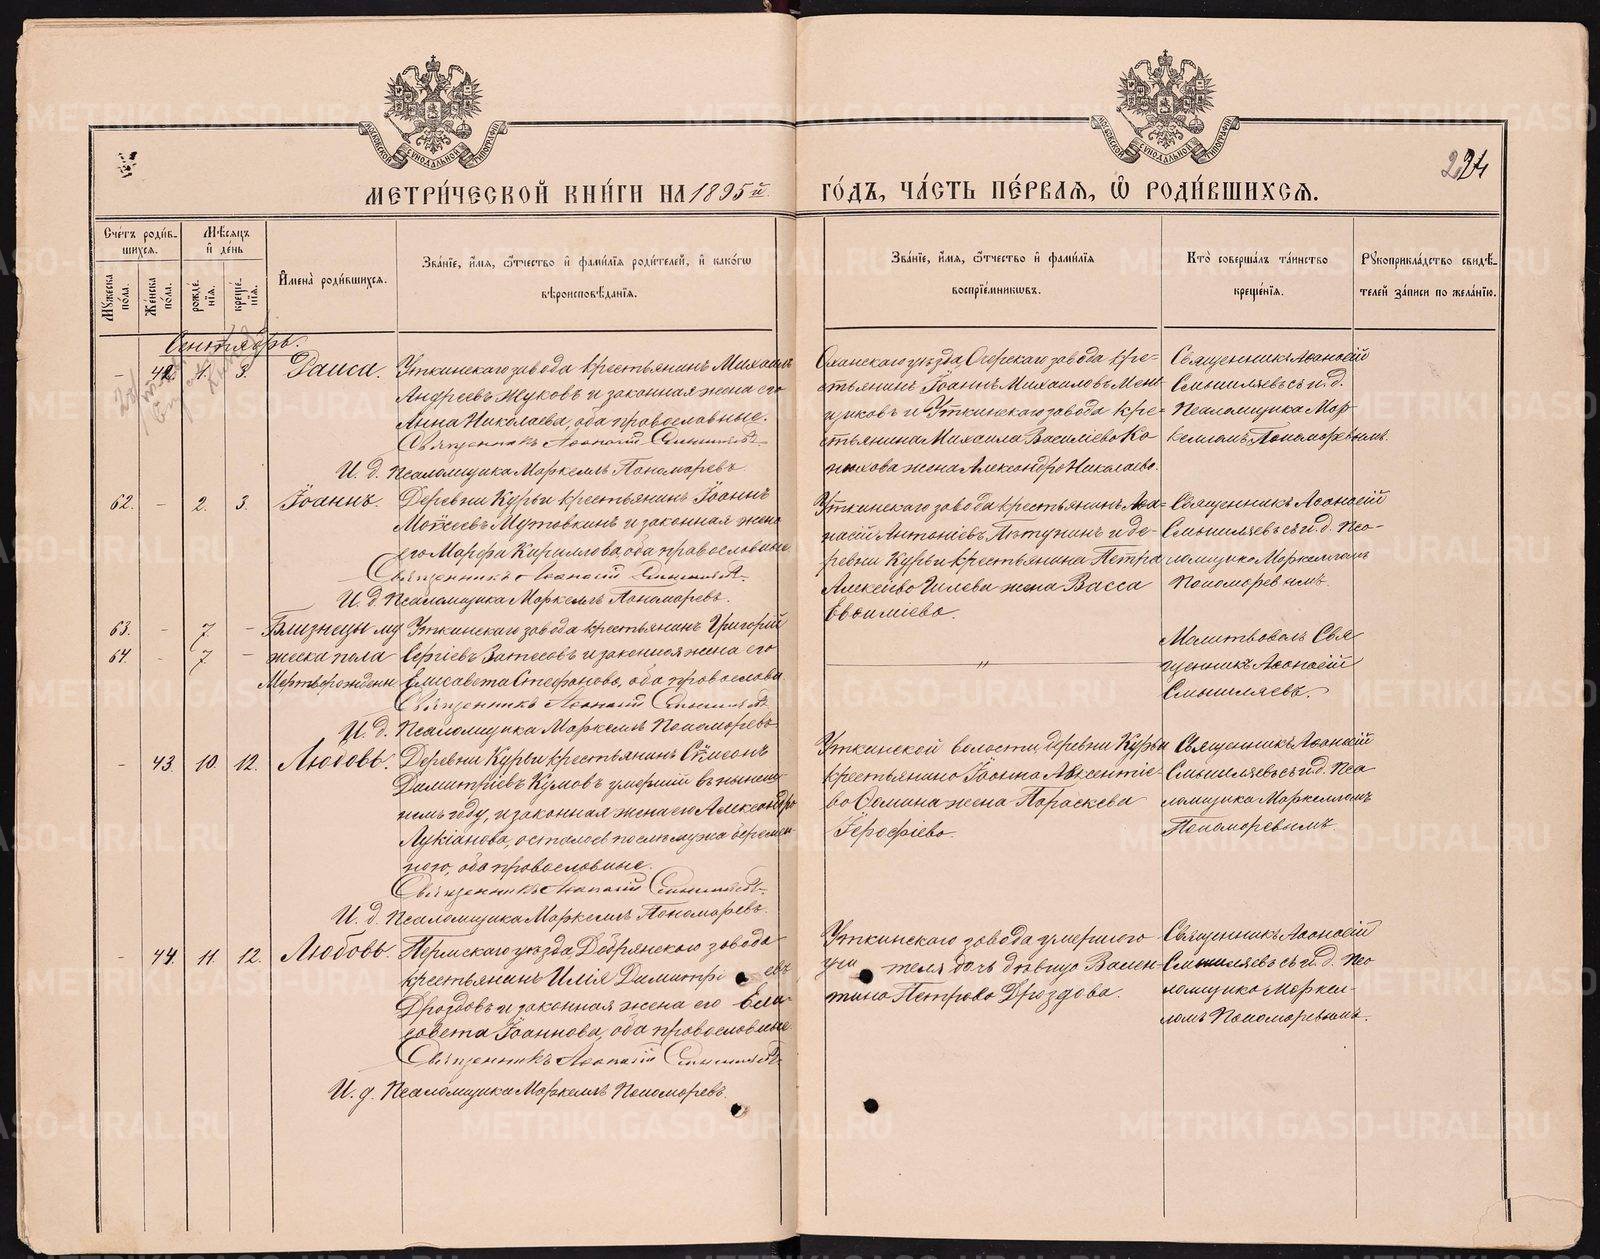 МЕТРИ́ЧЕСКОЙ КНИ́ГИ НА 1895й
ГО́ДЪ, ЧА́СТЬ ПЕ́РВАѦ, Ѽ РОДИ́ВШИХСѦ.
224
Сче́тъ роди́в-
шихсѧ.
Мꙋ́жеска по́ла.
Же́нска по́ла.
Мѣ́сѧцъ и҆ де́нь
рожде́нїѧ.
креще́нїѧ.
И҆мена̀ роди́вшихсѧ.
Зва́нїе, и҆́мѧ, ѻ҆́тчество и҆ фами́лїѧ роди́телей, и҆ како́гѡ
вѣроисповѣ́данїѧ.
Зва́нїе, и҆́мѧ, ѻ҆́тчество и҆ фами́лїѧ
воспрїе́мникѡвъ.
Кто̀ соверша́лъ та́инство
креще́нїѧ.
Рꙋкоприкла́дство свидѣ́-
телей за́писи по жела́нїю.
Сентябрь.
- 42. 1. 3. Раиса.
Уткинскаго завода крестьянинъ Михаилъ
Андреевъ Жуковъ и законная жена его
Анна Николаева, оба православные.
Священникъ Афанасій Смышляевъ
И. д. Псаломщика Маркеллъ Пономаревъ.
Оханскаго уѣзда, Очерскаго завода кре-
стьянинъ Іоаннъ Михайловъ Мень-
щиковъ и Уткинскаго завода кре-
стьянина Михаила Василіева Ко
нюхова жена Александра Николаева.
Священникъ Аѳанасій
Смышляевъ съ и. д.
Псаломщика Мар-
келломъ Пономаревымъ.
62. - 2. 3. Іоаннъ.
Деревни Курьи крестьянинъ Іоаннъ
Моисеевъ Мутовкинъ и законная жена
его Марфа Кириллова, оба православные
Священникъ Аѳанасій Смышляевъ.
И. д. Псаломщика Маркеллъ Пономаревъ.
Уткинскаго завода крестьянинъ Аѳа-
насій Антоніевъ Пѣтунинъ и де-
ревни Курьи крестьянина Петра
Алексѣева Чилева жена Васса
Евѳиміева.
Священникъ Аѳанасій
Смышляевъ съ и. д. Пса-
ломщика Маркелломъ
Пономаревымъ.
63. - 7. - Близнецы му
64. - 7 - жеска пола
Мертворожденн
Уткинскаго завода крестьянинъ Григорій
Сергіевъ Затесовъ и законная жена его
Елисавета Стефанова, оба православн.
Священникъ Аѳанасій Смышляевъ
И. д. Псаломщика Маркеллъ Пономаревъ
"
Молитвовалъ Свя
щенникъ Аѳанасій
Смышляевъ.
- 43. 10. 12. Любовь.
Деревни Курьи крестьянинъ Сѵмеонъ
Димитріевъ Кумовъ умершій въ нынѣш
немъ году, и законная жена его Александра
Лукіанова, осталась послѣ мужа беремен
ною, оба православные.
Священникъ Аѳанасій Смышляевъ.
И. д. Псаломщика Маркеллъ Пономаревъ.
Уткинской волости, деревни Курьи
крестьянина Іоанна Авксентіе-
ва Ѳомина жена Параскева
Іероѳіева.
Священникъ Аѳанасій
Смышляевъ съ и. д. Пса
ломщика Маркелломъ
Пономаревымъ.
- 44. 11. 12. Любовь.
Пермскаго уѣзда, Добрянскаго завода
крестьянинъ Илія Димитріевъ
Дроздовъ и законная жена его Ели-
савета Іоаннова, оба православные
Священникъ Аѳанасій Смышляевъ.
И. д. Псаломщика Маркеллъ Пономаревъ.
Уткинскаго завода умершаго
учителя дочь дѣвица Вален-
тина Петрова Дроздова.
Священникъ Аѳанасій
Смышляевъ съ и. д. Пса
ломщика Маркел-
ломъ Пономаревымъ.
METRIKI.GASO-URAL.RU